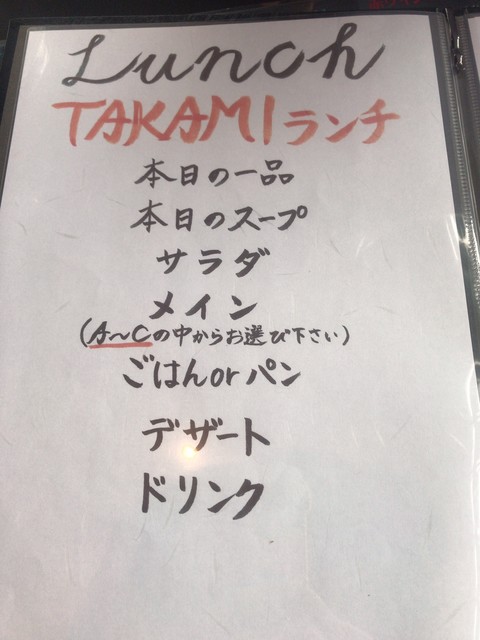 Lunch
TAKAMIランチ
本日の一品
本日のスープ
サラダ
メイン
(A~Cの中からお選び下さい)
ごはんorパン
デザート
ドリンク